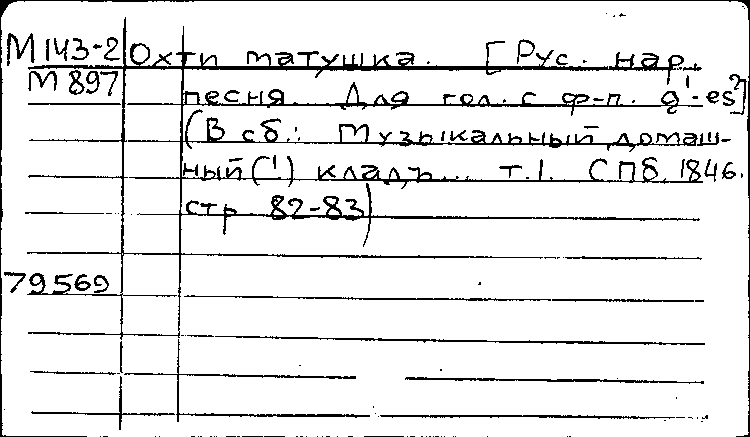 М143-2 Охти матушка. [Рус. нар.
М897 песня. Для гол. с ф-п. g'-es²]
(В сб.: Музыкальный домаш-
ный (!) кладъ... т.1. СПб, 1846.
стр. 82-83)
79569